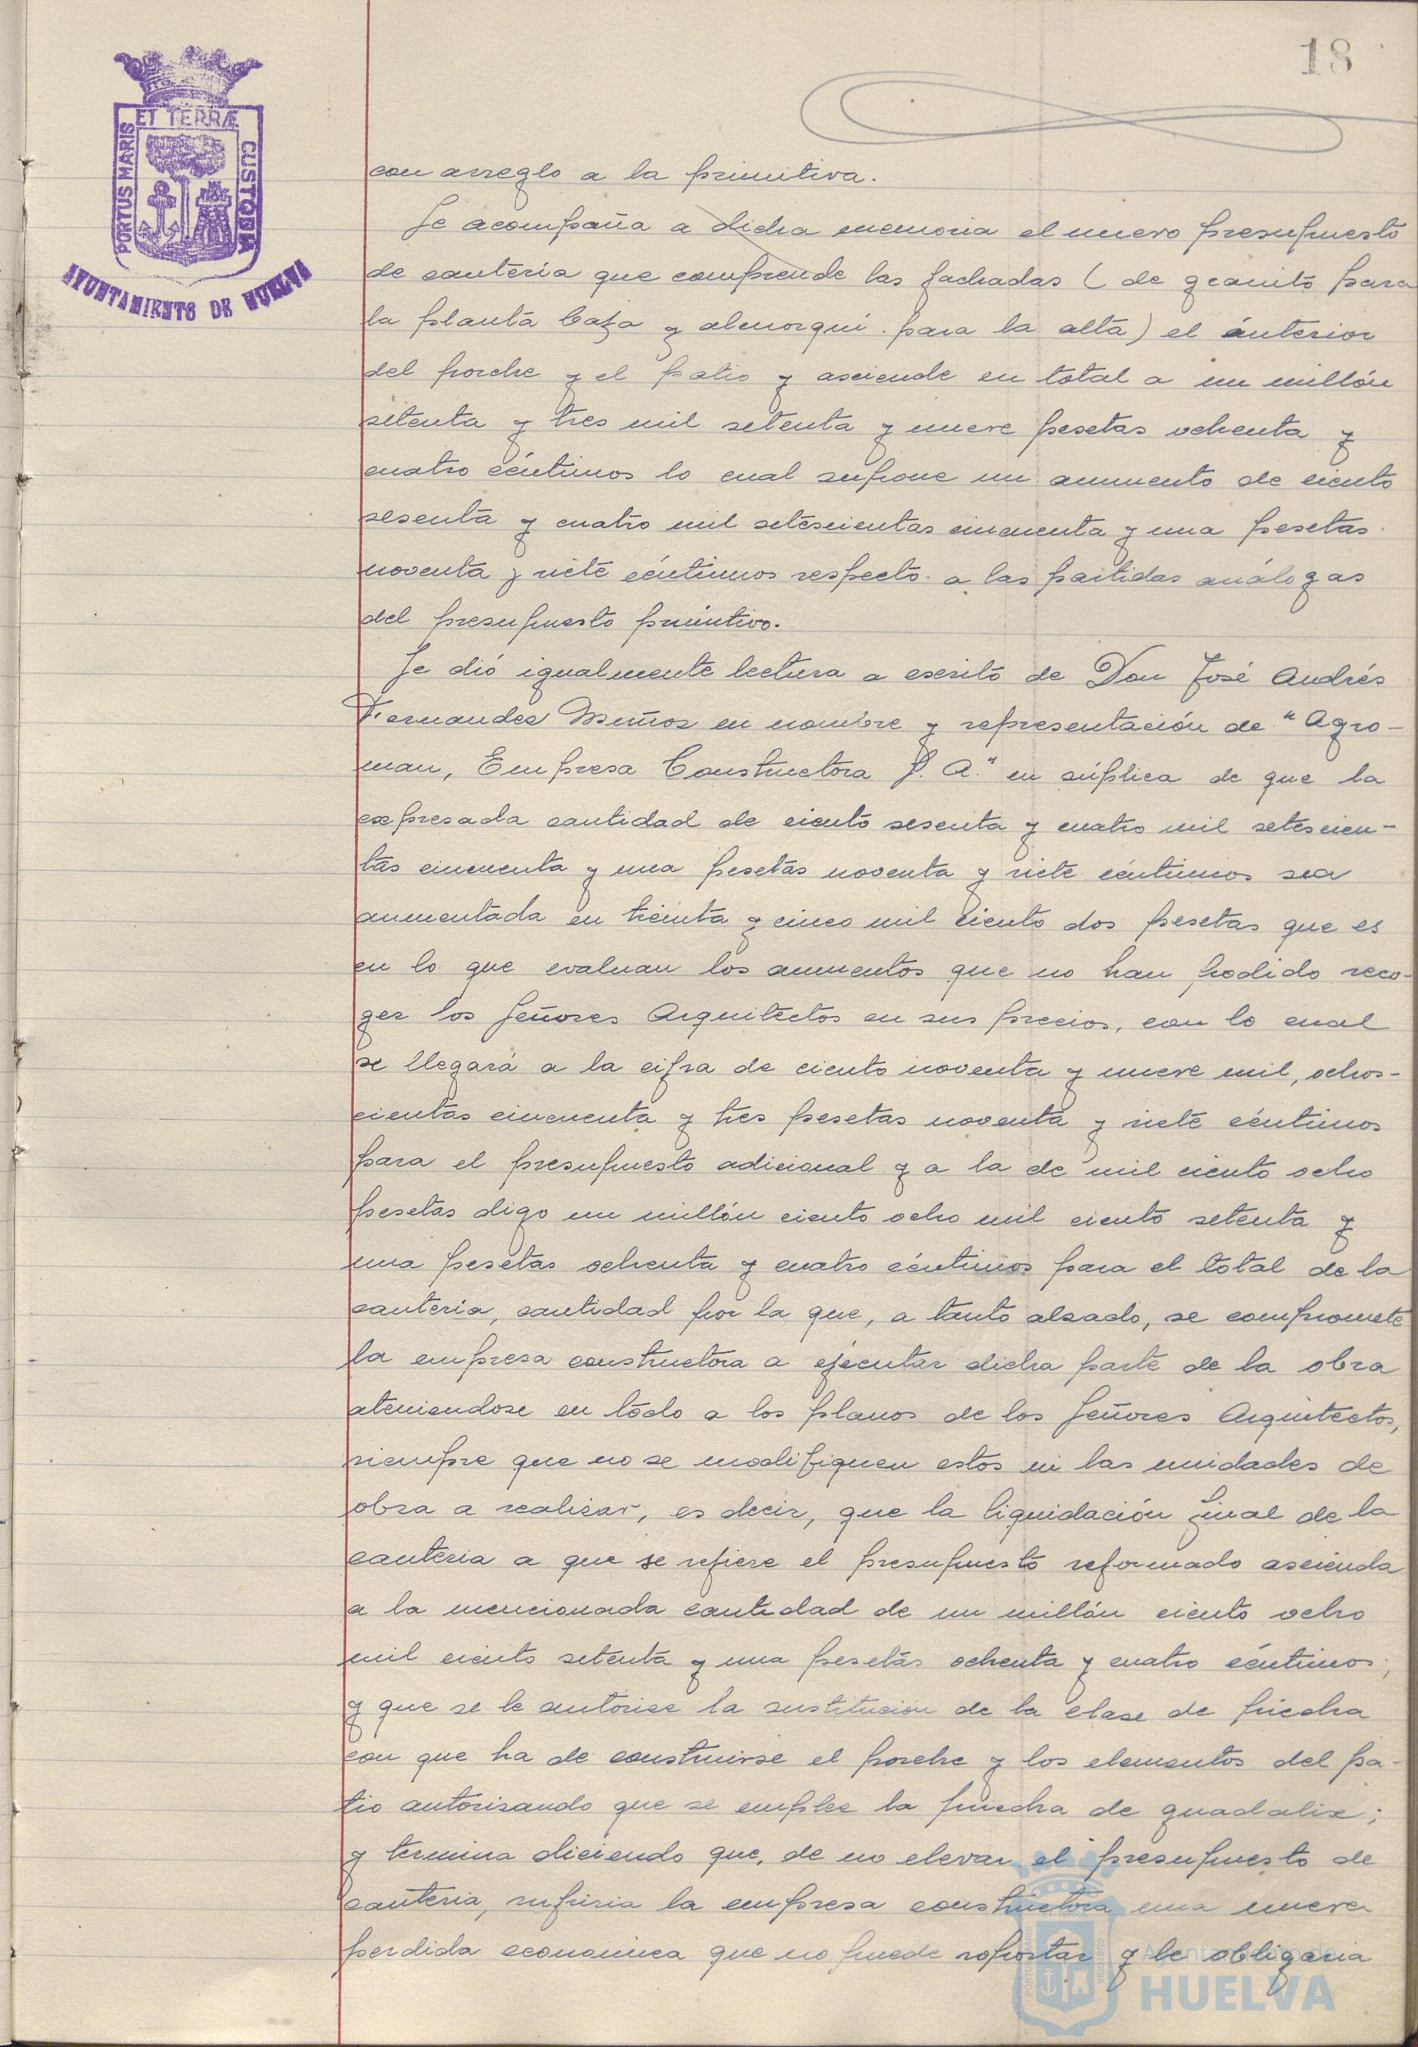 18
ET TERRÆ
PORTUS MARIS
CUSTODIA
AYUNTAMIENTO DE HUELVA
con arreglo a la primitiva.
Se acompaña a dicha memoria el nuevo presupuesto
de cantería que comprende las fachadas ( de granito para
la planta baja y almorquí para la alta) el ánterior
del porche y el patio y asciende en total a un millón
setenta y tres mil setenta y nueve pesetas ochenta y
cuatro céntimos lo cual supone un aumento de ciento
sesenta y cuatro mil setescientas cincuenta y una pesetas
noventa y siete céntimos respecto a las partidas análogas
del presupuesto primitivo.
Se dió igualmente lectura a escrito de Don José Andrés
Fernandes Muñoz en nombre y representación de "Agro-
man, Empresa Constructora S. A." en súplica de que la
expresada cantidad de ciento sesenta y cuatro mil setescien-
tas cincuenta y una pesetas noventa y siete céntimos sea
aumentada en treinta y cinco mil ciento dos pesetas que es
en lo que evaluan los aumentos que no han podido reco-
ger los Señores Arquitectos en sus precios, con lo cual
se llegará a la cifra de ciento noventa y nueve mil, ochos-
cientas cincuenta y tres pesetas noventa y siete céntimos
para el presupuesto adicional y a la de mil ciento ocho
pesetas digo un millón ciento ocho mil ciento setenta y
una pesetas ochenta y cuatro céntimos para el total de la
cantería, cantidad por la que, a tanto alzado, se compromete
la empresa constructora a ejecutar dicha parte de la obra
ateniendose en todo a los planos de los Señores Arquitectos,
siempre que no se modifiquen estos ni las unidades de
obra a realizar, es decir, que la liquidación final de la
cantería a que se refiere el presupuesto reformado ascienda
a la mencionada cantidad de un millón ciento ocho
mil ciento setenta y una pesetas ochenta y cuatro céntimos;
y que se le autorice la sustitución de la clase de piedra
con que ha de construirse el porche y los elementos del pa-
tio autorizando que se emplee la piedra de guadalix;
y termina diciendo que, de no elevar el presupuesto de
cantería, sufriria la empresa constructora una nueva
perdida economica que no puede soportar y le obligaria
Ayuntamiento de
HUELVA